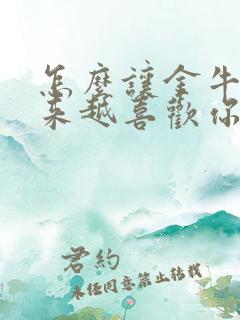 怎麼讓金牛
來越喜歡你
君約
未經同意禁止轉載